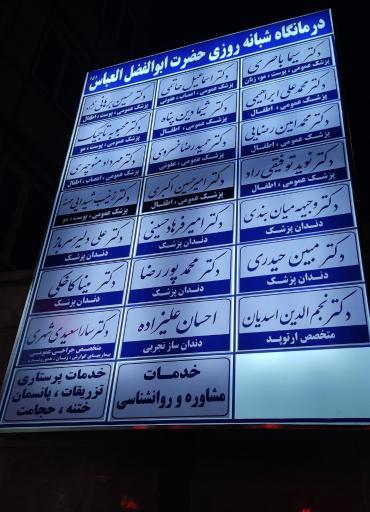 درمانگاه شبانه روزی حضرت ابوالفضل العباس (ع)
دکتر سیما باصری
پزشک عمومی ، پوست ، مو، زنان
دکتر اسماعیل حاتمی
پزشک عمومی ، اعصاب ، عفونی
دکتر حسین
پزشک عمومی ، پوست ، اطفال
دکتر محمد علی ابراهیمی
پزشک عمومی ، اطفال
دکتر شیما دین پناه
پزشک عمومی ، اطفال
دکتر محبوبه تاجیک
پزشک عمومی ، پوست ، مو
دکتر محمد امین رضایی
پزشک عمومی ، اطفال
دکتر حمید رضا خسروی
پزشک عمومی ، عفونی
دکتر مهرداد منوچهری
پزشک عمومی ، اعصاب ، اطفال
دکتر نوید توفیقی راد
پزشک عمومی ، اطفال
دکتر امیرحسین اکبری
پزشک عمومی ، اطفال
دکتر زینب
پزشک عمومی ، پوست ، مو
دکتر وجیهه میان بندی
دندان پزشک
دکتر امیر فرهاد حسینی
دندان پزشک
دکتر علی دلیر سرماز
دندان پزشک
دکتر مبین حیدری
دندان پزشک
دکتر محمد پور رضا
دندان پزشک
دکتر مینا کاخکی
دندان پزشک
دکتر نجم الدین اسدیان
متخصص ارتوپد
احسان علیزاده
دندان ساز تجربی
دکتر سارا سعیدی
متخصص جراحی عمومی
بیماریهای گوارش ، زنان ،
خدمات
مشاوره و روانشناسی
خدمات پرستاری
تزریقات ، پانسمان
ختنه ، حجامت